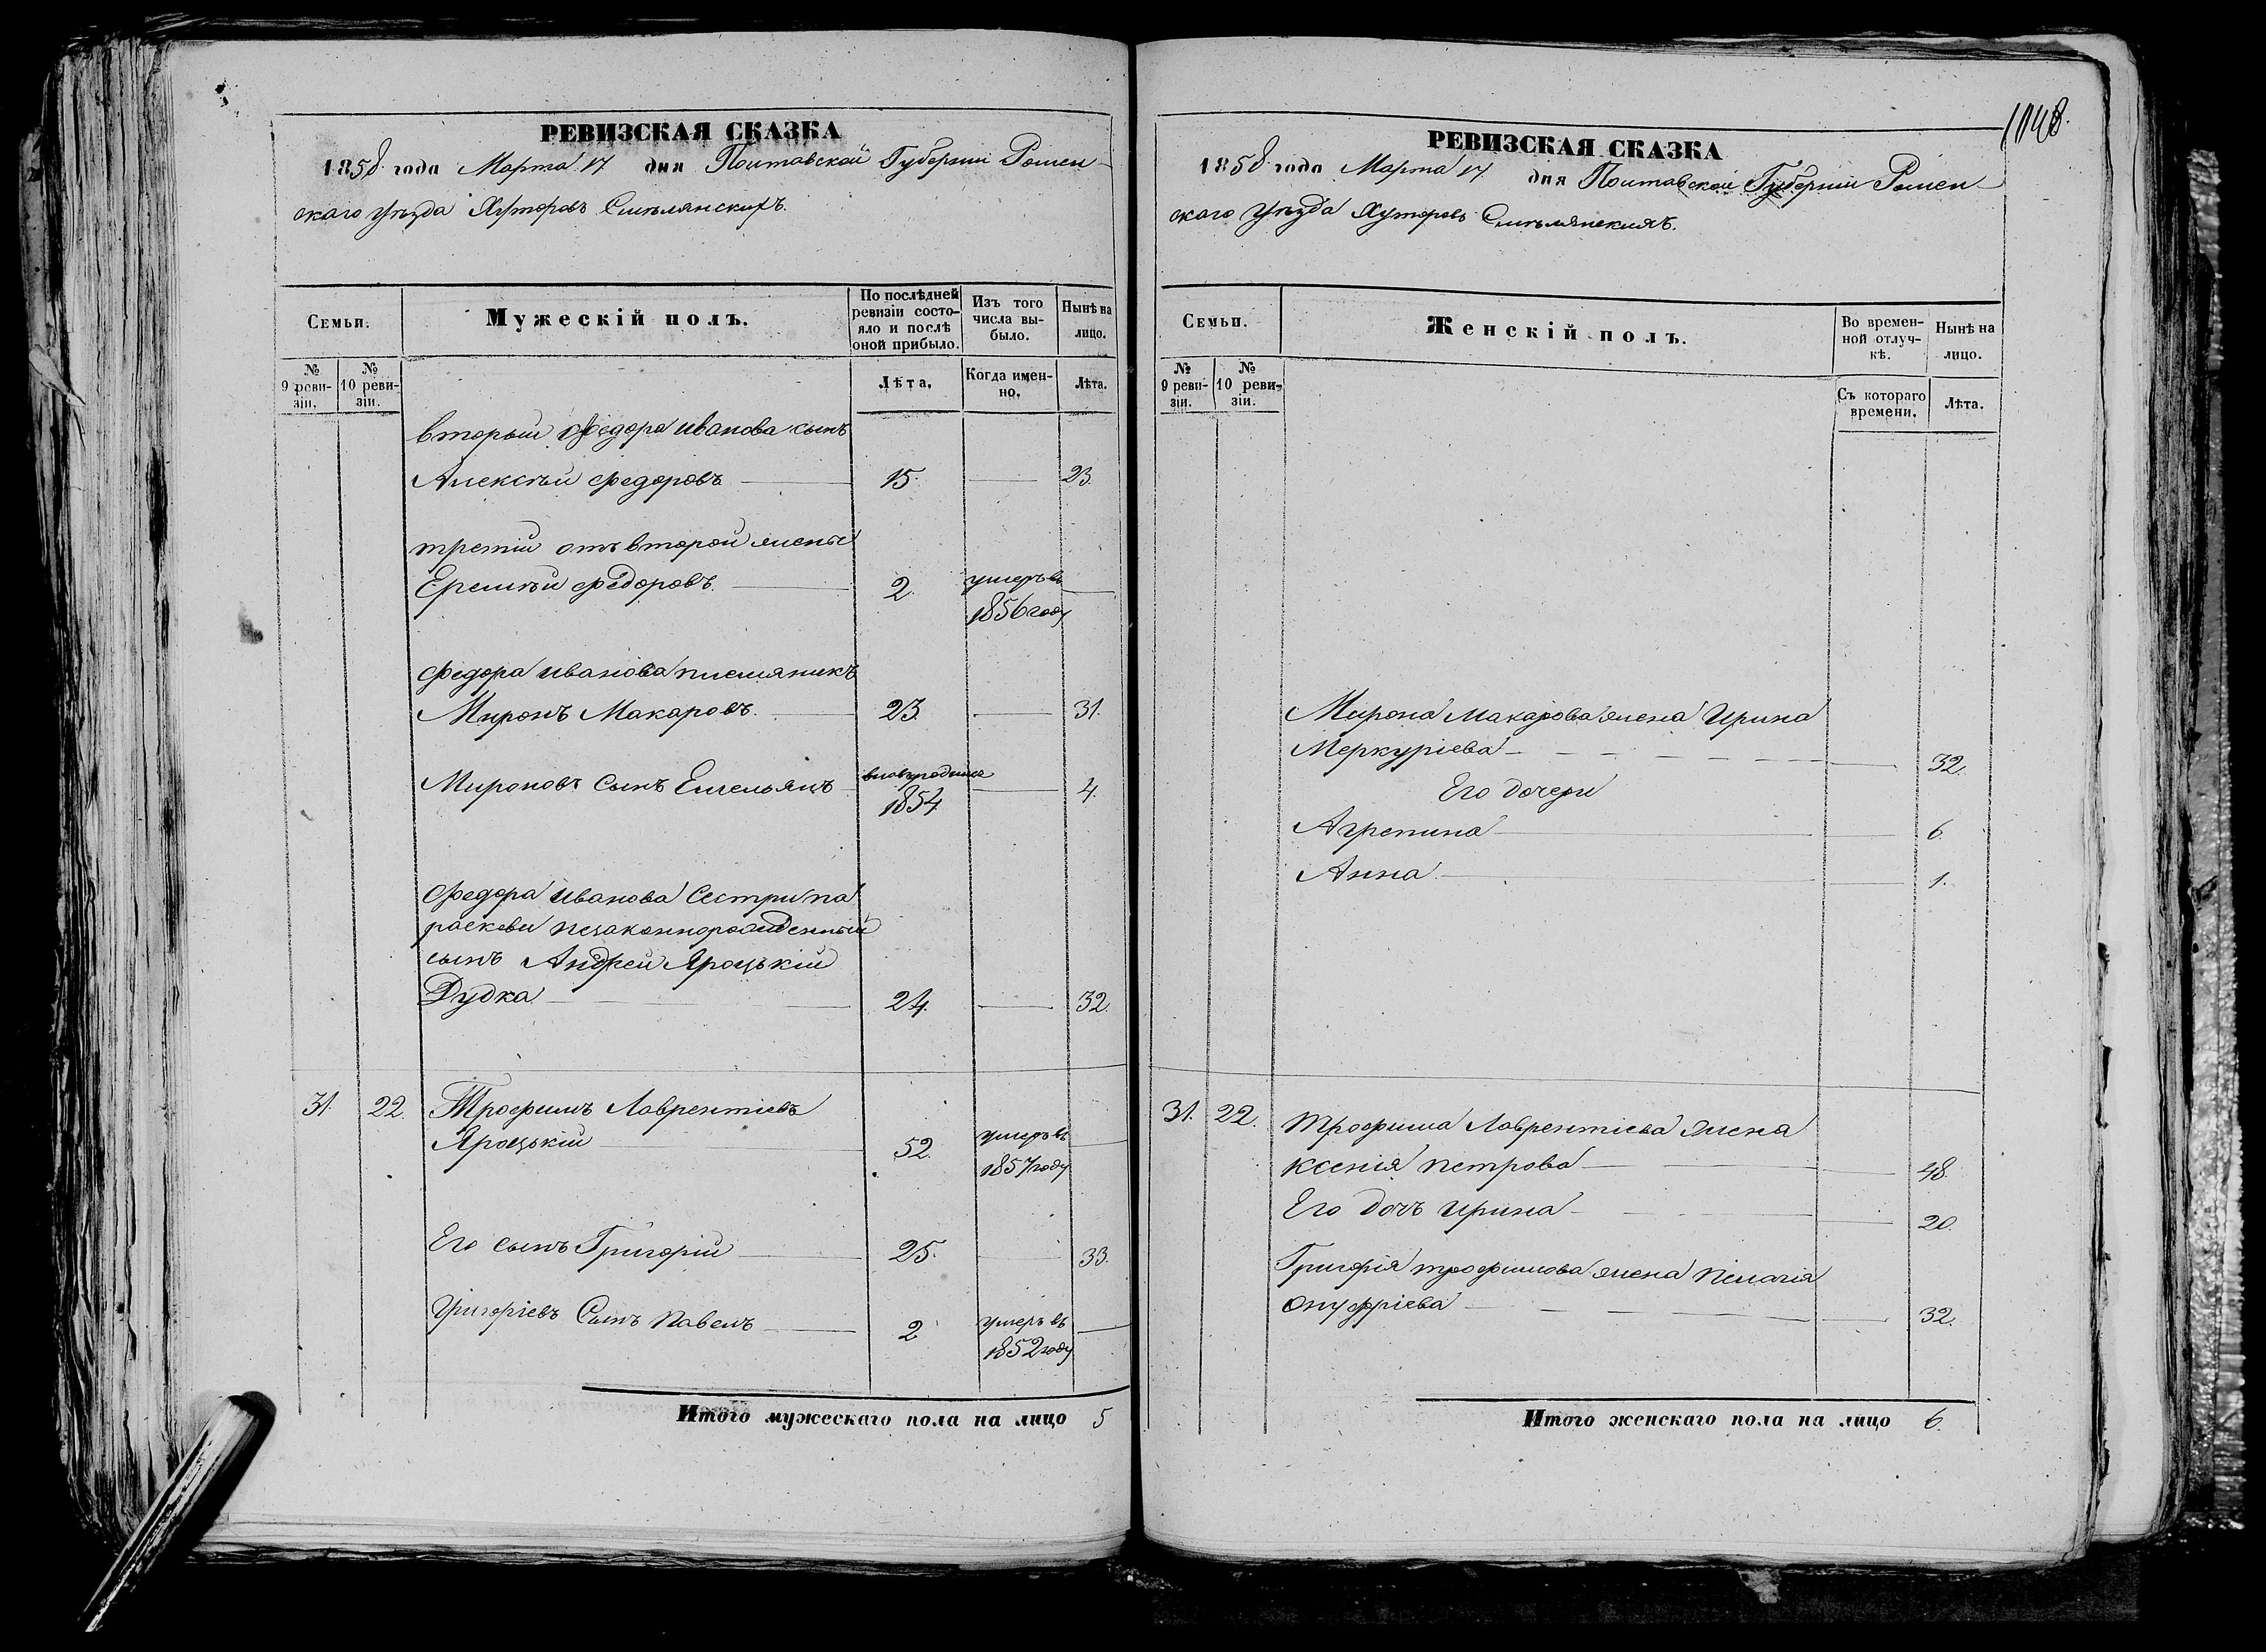 РЕВИЗСКАЯ СКАЗКА
1858 года Марта 17 дня Полтавской Губерніи Ромен-
скаго уѣзда Хуторовъ Смѣлянскихъ.
Семьи.
Мужескій полъ.
По послѣдней ревизіи состояло и послѣ оной прибыло.
Изъ того числа выбыло.
Нынѣ на лицо.
№ 9 ревизіи.
№ 10 ревизіи.
Лѣта.
Когда именно.
Лѣта.
вторый Федора Иванова сынъ
Алексѣй Федоровъ 15. 23.
третій отъ второй жены
Еремѣй Федоровъ 2. умеръ въ
1856 году
Федора Иванова племяникъ
Миронъ Макаровъ. 23. 31.
Мироновъ Сынъ Емельянъ 4.
1854
Федора Иванова Сестри Па
раскеви незаконнорожденный
сынъ Андрей Яроцькій
Дудка 24. 32.
31. 22. Трофимъ Лаврентіевъ
Яроцькій 52. умеръ въ
1857 году
Его сынъ Григорій 25. 33.
Григоріевъ Сынъ Павелъ 2 умеръ въ
1852 году
Итого мужескаго пола на лицо 5
1048.
РЕВИЗСКАЯ СКАЗКА
1858 года Марта 17 дня Полтавской Губерніи Ромен-
скаго уѣзда Хуторовъ Смѣлянскихъ.
Семьи.
Женскій полъ.
Во временной отлучкѣ.
Нынѣ на лицо.
№ 9 ревизіи.
№ 10 ревизіи.
Съ котораго времени.
Лѣта.
Мирона Макарова жена Ирина
Меркуріева 32.
Его дочери
Агрепина 6.
Анна 1.
31. 22. Трофима Лаврентіева жена
Ксенія Петрова 48.
Его дочь Ирина 20.
Григорія Трофимова жена Пелагія
Онуфріева 32.
Итого женскаго пола на лицо 6.